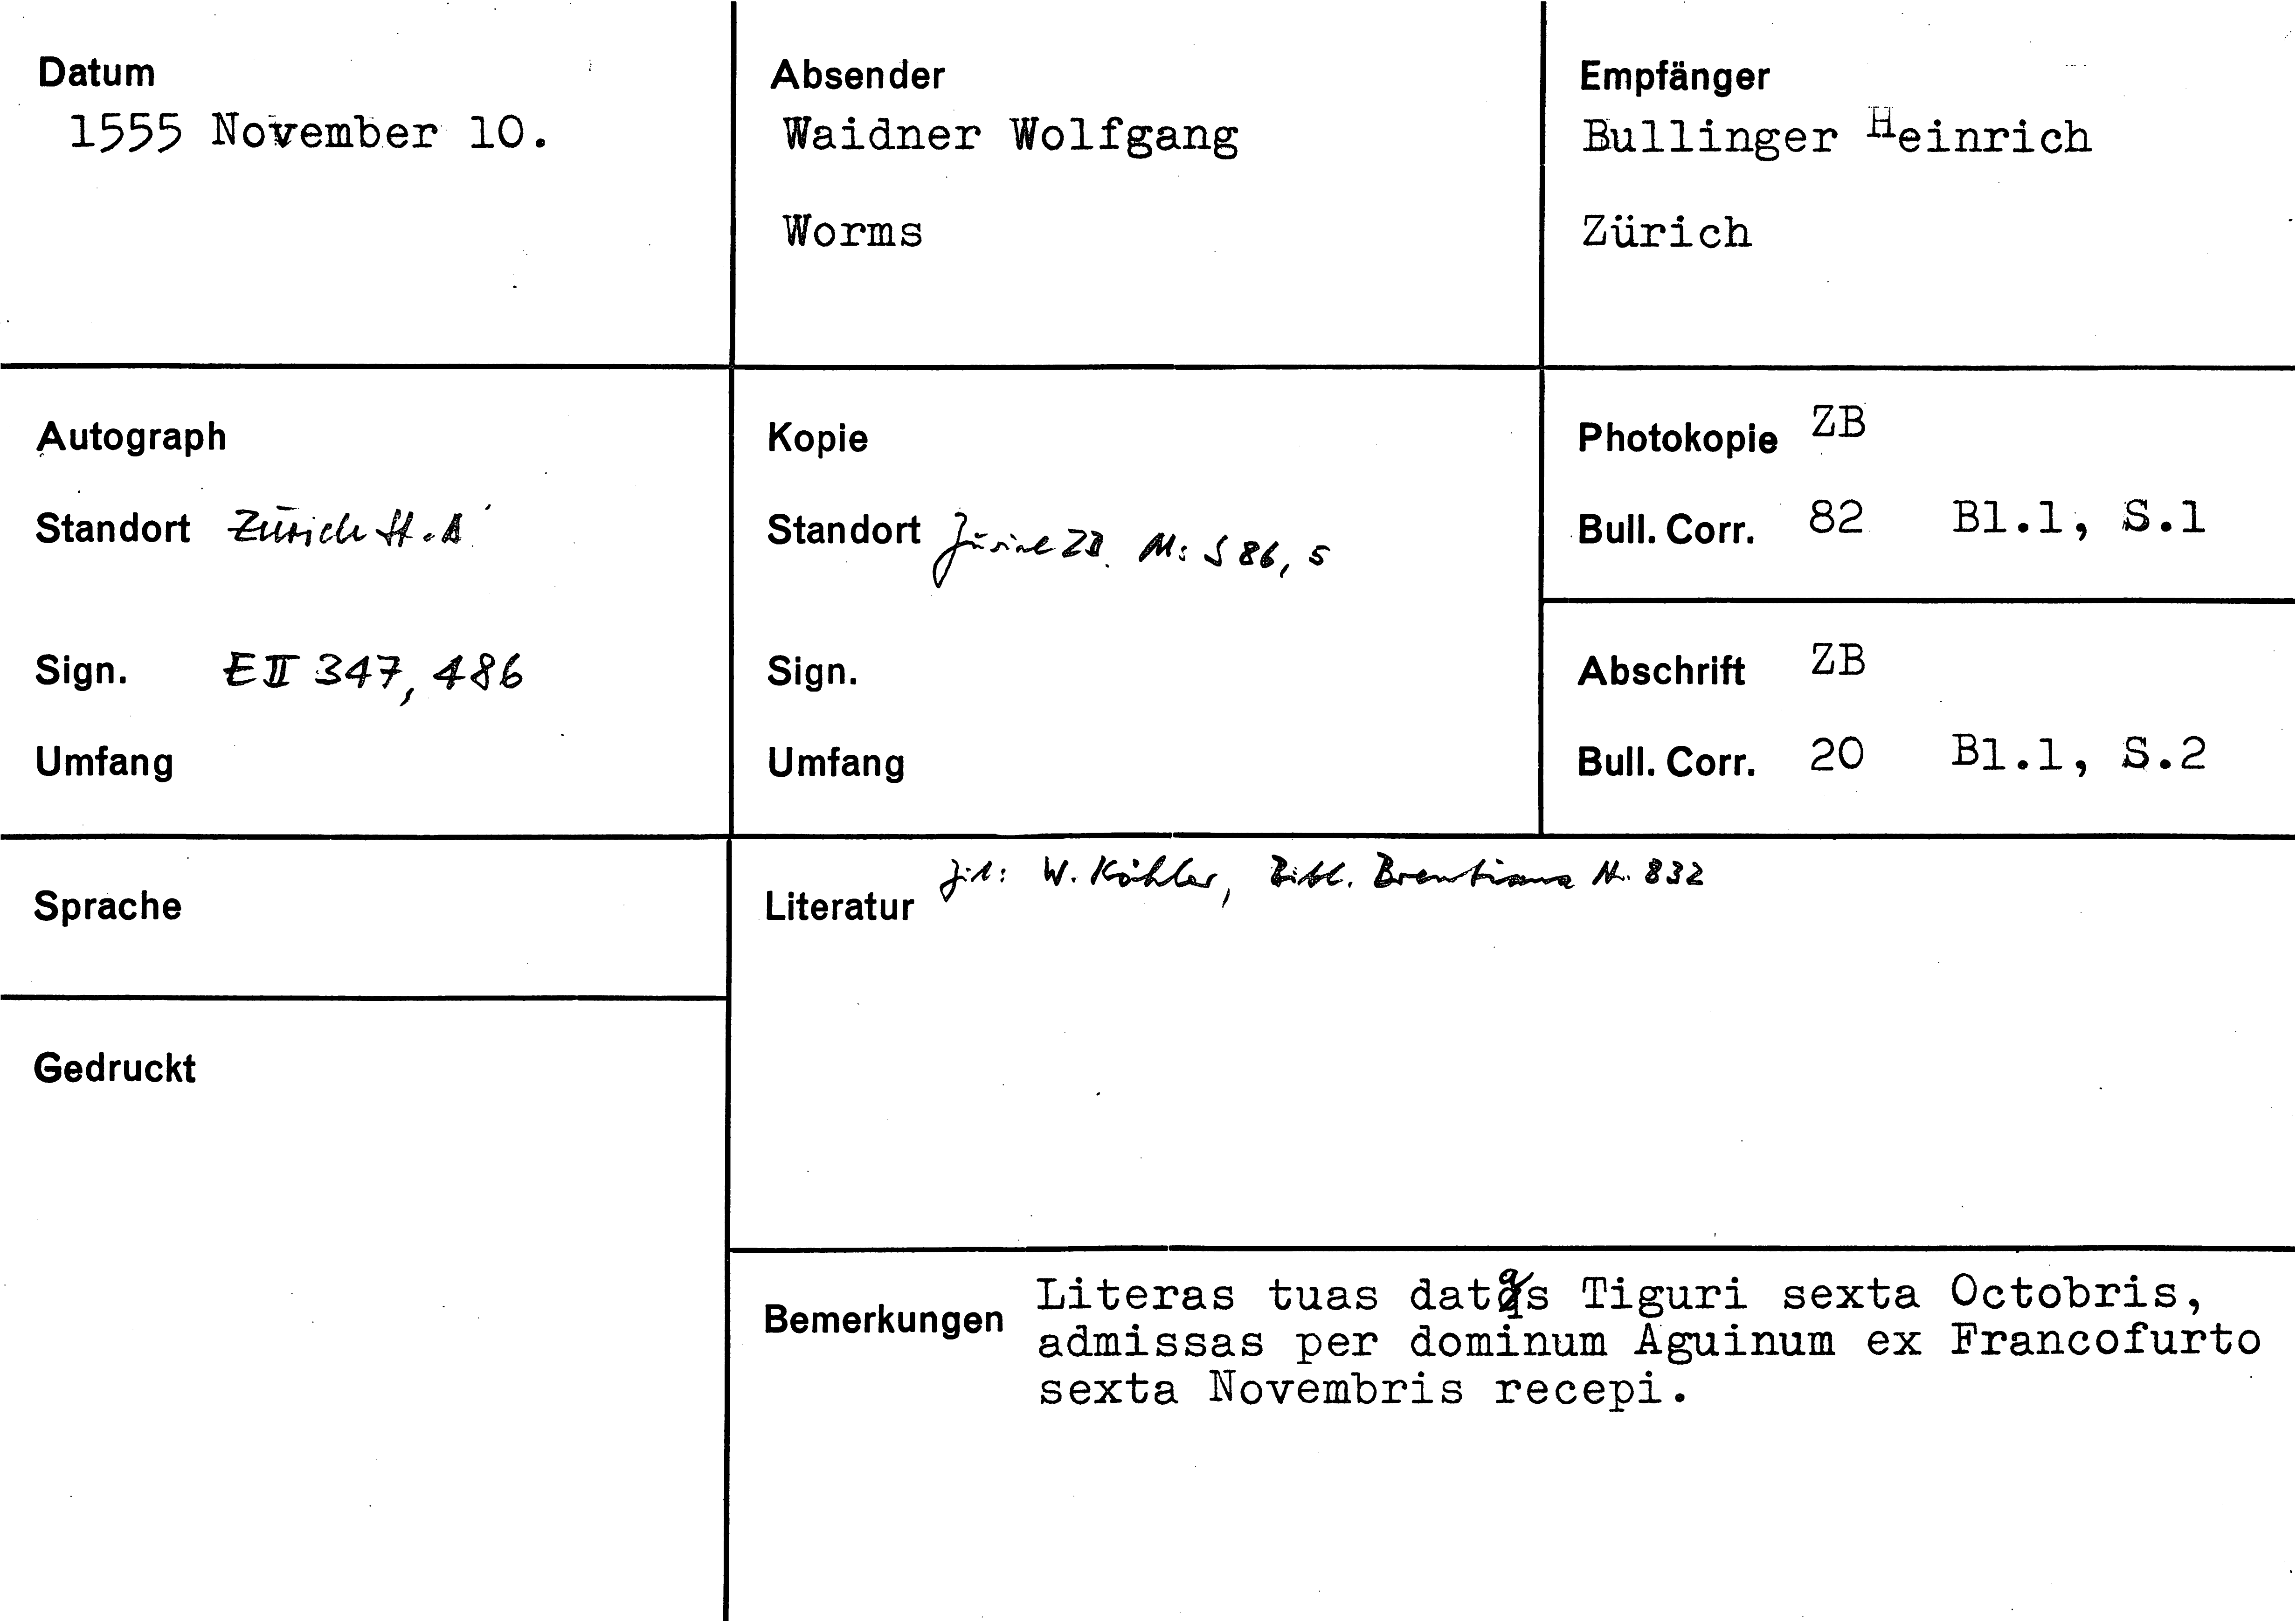 Datum
1555 November 10.
Absender
Waidner Wolfgang
Worms
Empfänger
Bullinger Heinrich
Zürich
Autograph
Standort Zürich St.A
Sign. E II 347, 486
Umfang
Kopie
Standort Zürich ZB. Ms S 86, 5
Sign.
Umfang
Photokopie ZB
Bull. Corr. 82 Bl.1, S.1
Abschrift ZB
Bull. Corr. 20 Bl.1, S.2
Sprache
Gedruckt
Literatur zit: W. Köhler, Bibl. Brentiana Nr. 832
Bemerkungen Literas tuas datas Tiguri sexta Octobris,
admissas per dominum Aguinum ex Francofurto
sexta Novembris recepi.